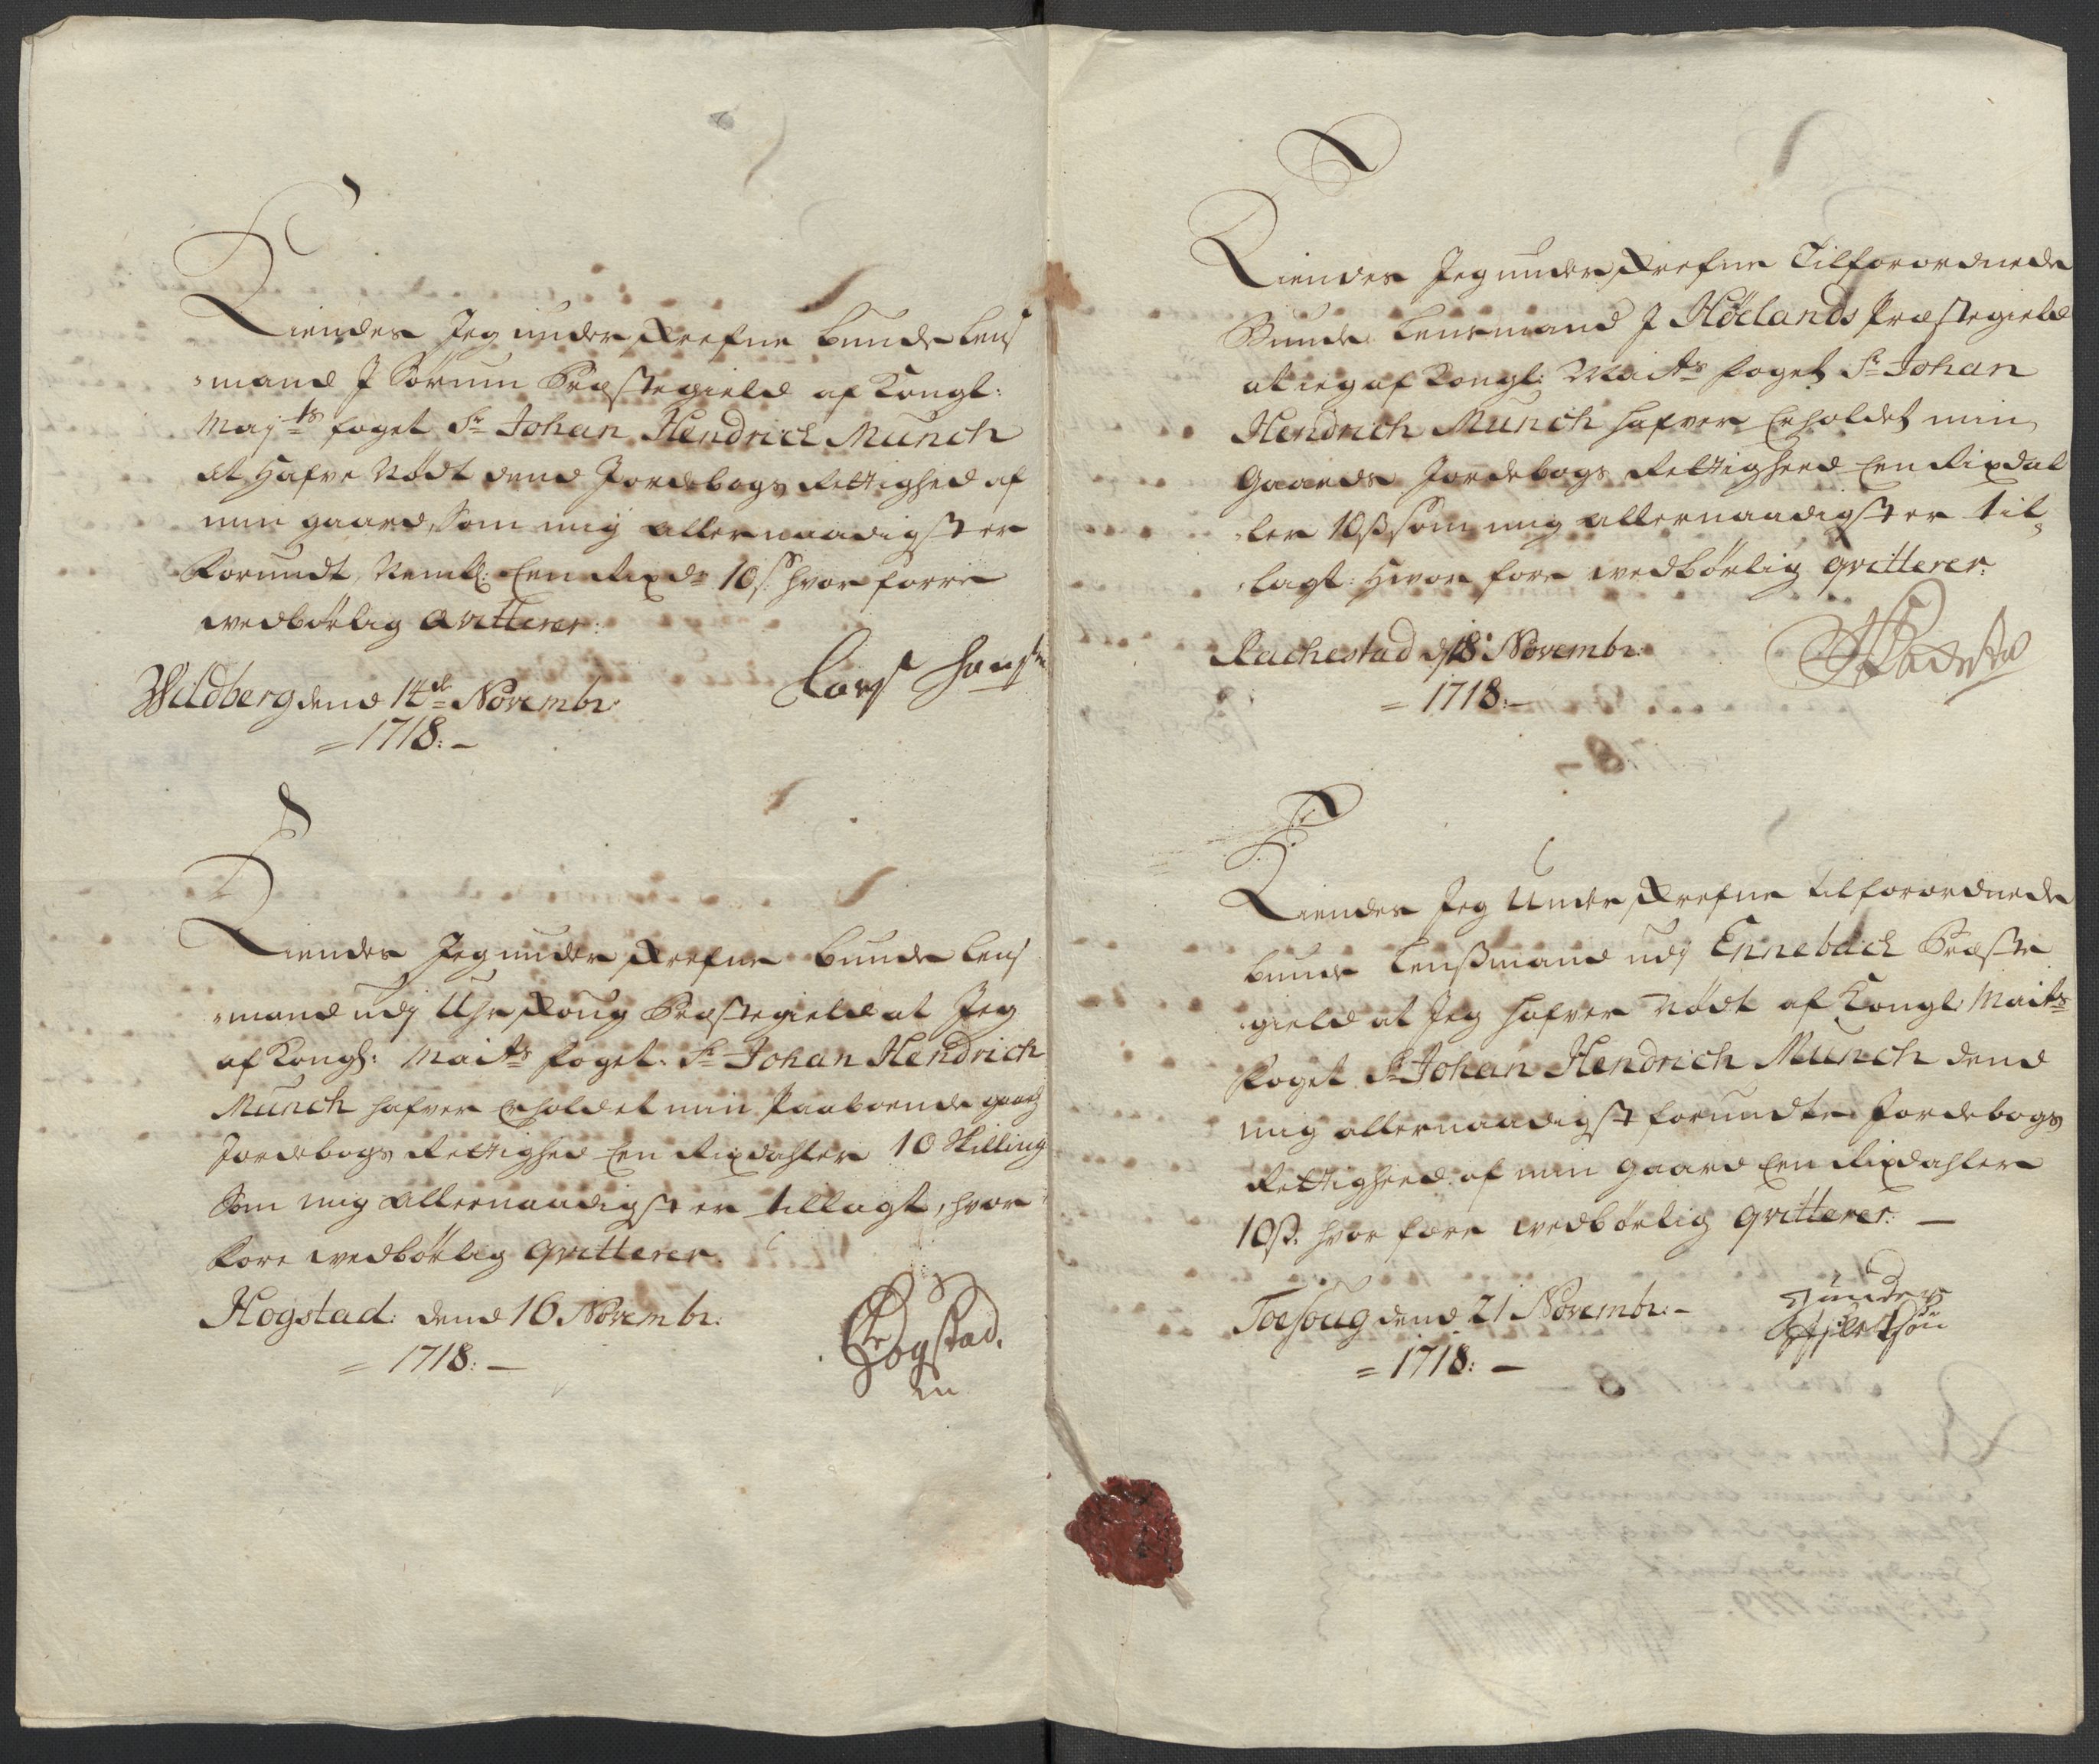 Kiendes Jeg underskrefne bunde lens
mand J Sørum Præstegield af Kongl:
Maj:ts foget Sr Johan Hendrich Munch
at hafve Nødt dend Jordebogs Rettighed af
min gaard, Som mig allernaadigst er
Forundt, Neml: Een Rixdr 10 s: hvor forre
wedbørlig qvitterer:
Wildberg dend 14de Novembr:
= 1718: -
Lars Hansen
Kiendes Jeg underskrefne bunde lens
mand udj Uhrskoug Præstegield at Jeg
af Kongl: Maits foget: Sr Johan Hendrich
Munch hafver Erholdet min Paaboende gaards
Jordebogs Rettighed Een Rixdahler 10 skilling
Som mig allernaadigst er tillagt, hvor
fore wedbørlig qvitterer.
Hogstad: dend 16 Novembr:
= 1718: -
Hogstad.
Kiendes Jeg underskrefne Tilforordnede
Bunde Lensmand J Hølands Præstegield
at ieg af Kongl: Maits foget Sr Johan
Hendrich Munch hafver Erholdet min
Gaards Jordebogs Rettigheed Een Rixdal
ler 10 ß som mig allernaadigst er til
lagt: hvor fore wedbørlig qvitterer:
Rachestad d: 18 Novembr:
= 1718: -
Kiendes Jeg Underskrefne tilforordnede
bunde Lenßmand udj Ennebach Præste
gield at Jeg hafver Nødt af Kongl: Maits
Foget Sr Johan Hendrich Munch dend
mig allernaadigst forundte Jordebogs
Rettigheed: af min Gaard Een Rixdahler
10 ß: hvor fore wedbørlig qvitterer: -
Toesoug dend 21 Novembr: -
= 1718: -